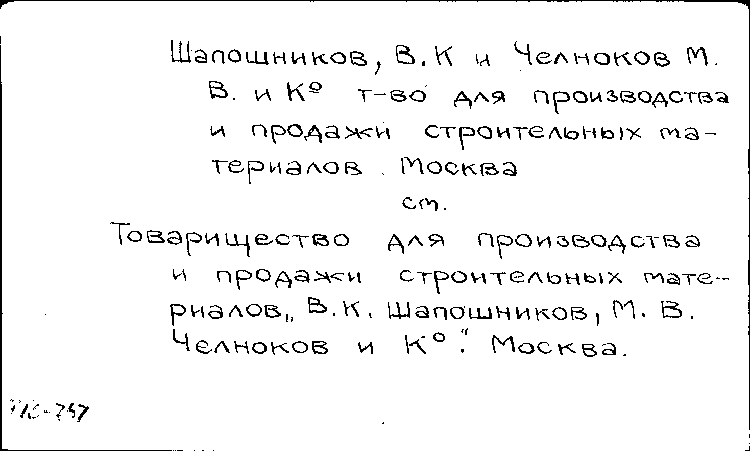 Шапошников, В.К и Челноков М.
В. и К⁰ т-во для производства
и продажи строительных ма-
териалов. Москва
см.
Товарищество для производства
и продажи строительных мате-
риалов „В.К. Шапошников, М. В.
Челноков и К⁰“. Москва.